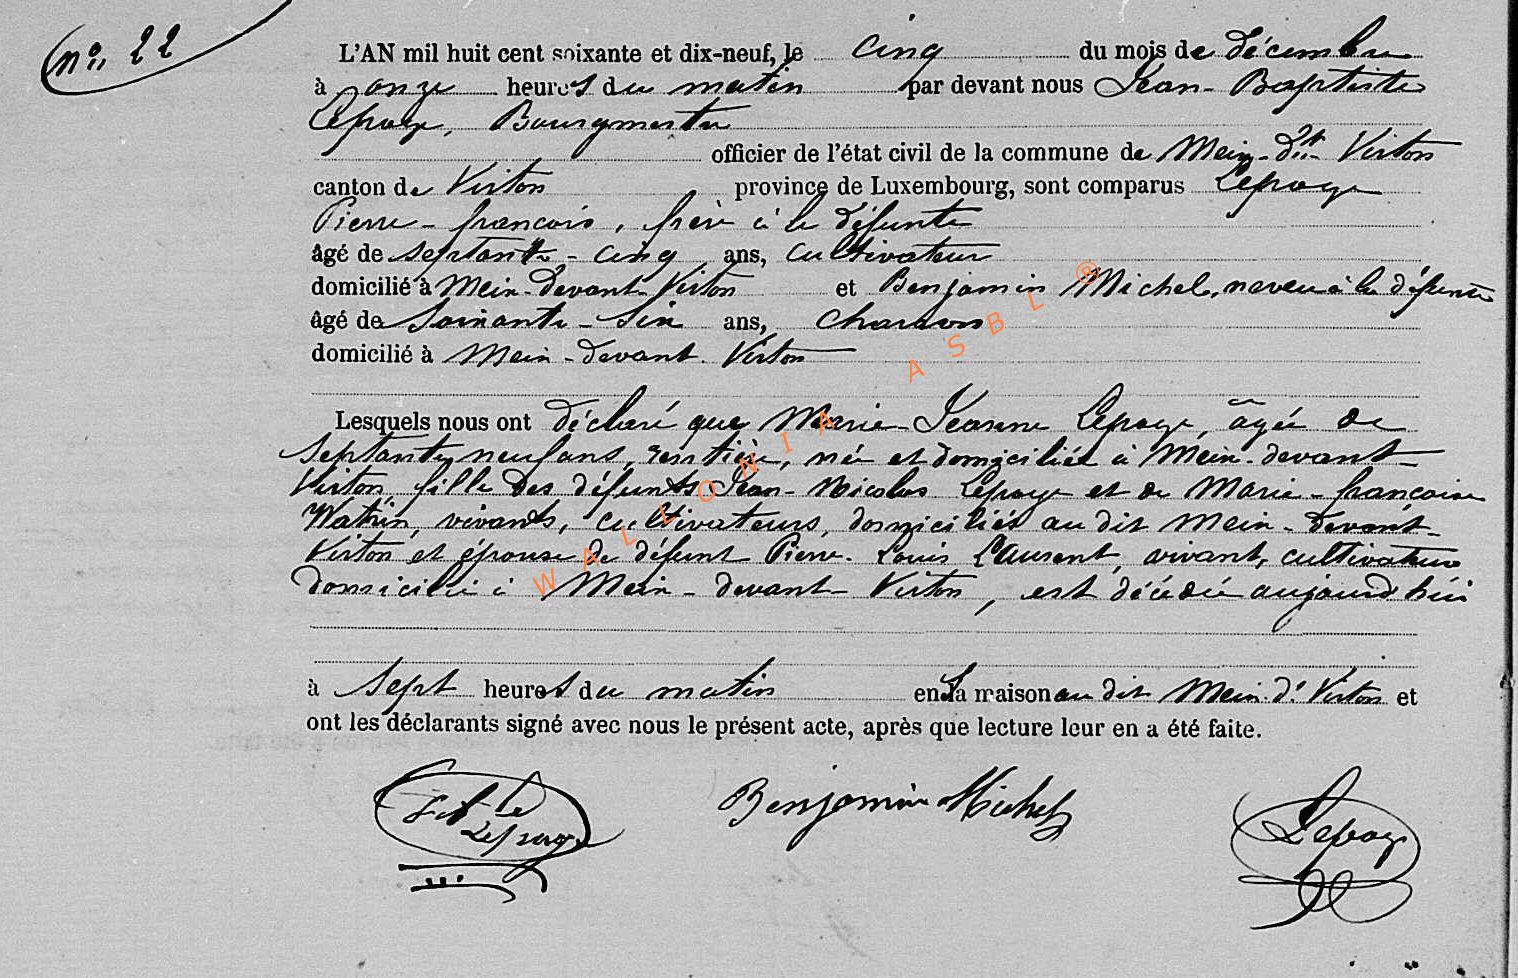 n° 22
L'AN mil huit cent soixante et dix-neuf, le cinq du mois de décembre
à onze heures du matin par devant nous Jean-Baptiste
Lepage, Bourgmestre
officier de l'état civil de la commune de Meix-dt Virton
canton de Virton province de Luxembourg, sont comparus Lepage
Pierre-françois, frère à la défunte
âgé de septante-cinq ans, cultivateur
domicilié à Meix-devant-Virton et Benjamin Michel, neveu à la défunte
âgé de soixante-six ans, charron
domicilié à Meix-devant Virton
Lesquels nous ont déclaré que Marie-Jeanne Lepage, âgée de
septante neuf ans, rentière, née et domiciliée à Meix-devant-
Virton, fille des défunts Jean-Nicolas Lepage et de Marie-françoise
Watrin, vivants, cultivateurs, domiciliés au dit Meix-devant-
Virton et épouse de défunt Pierre-Louis Laurent, vivant, cultivateur
domicilié à Meix-devant-Virton, est décédée aujourd'hui
à sept heures du matin en sa maison au dit Meix-dt Virton et
ont les déclarants signé avec nous le présent acte, après que lecture leur en a été faite.
Lepage
Benjamin Michel
Lepage
WALLONIA ASBL ®